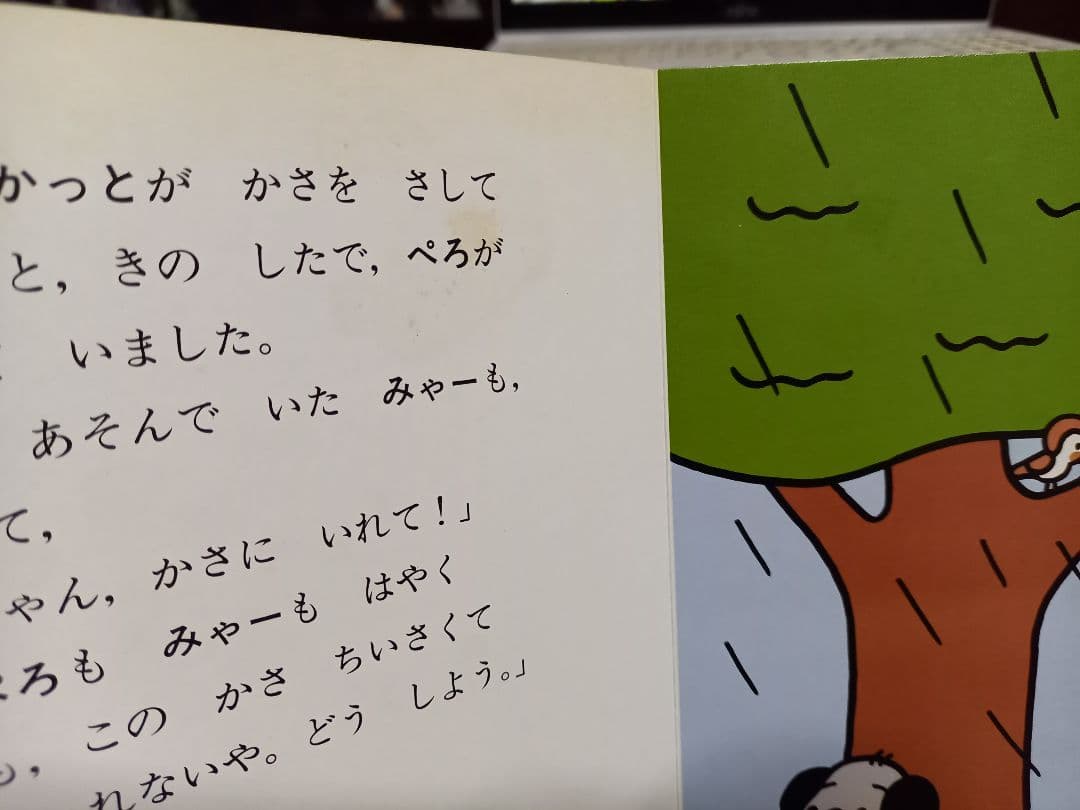 かっとが　かさを　さして
と，きの　したで，ぺろが
いました。
あそんで　いた　みゃーも，
て，
ゃん，かさに　いれて！」
ろも　みゃーも　はやく
この　かさ　ちいさくて
れないや。どう　しよう。」